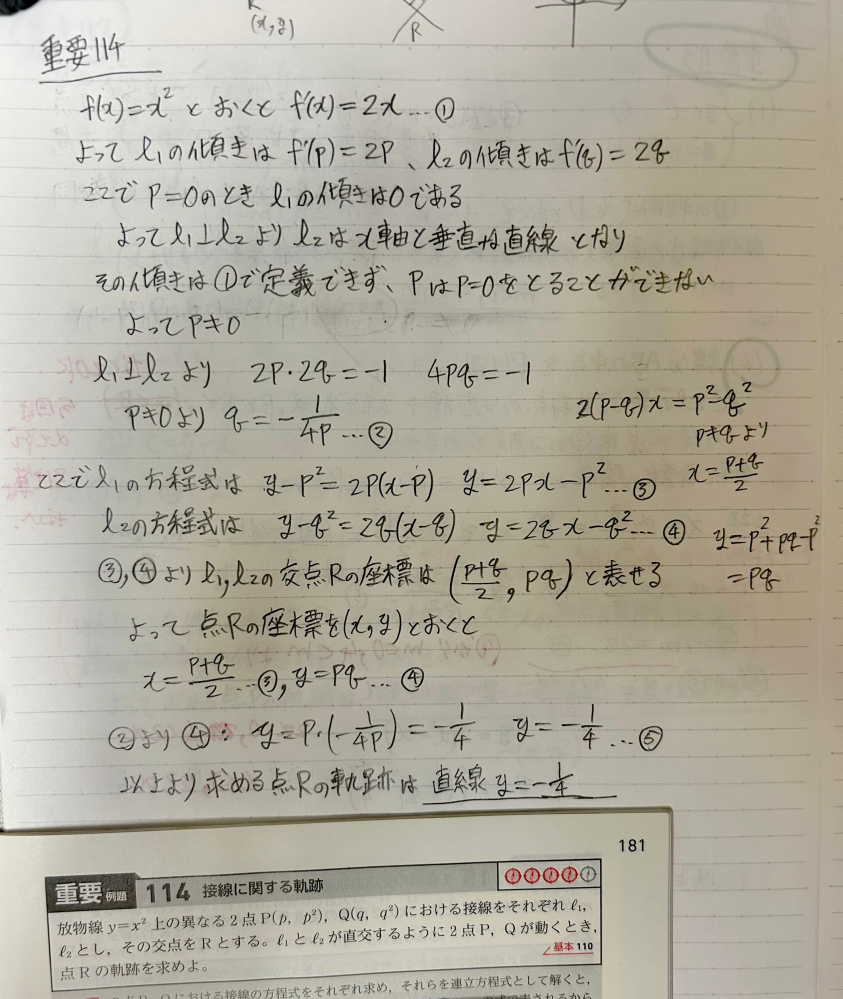 R
(x, y)
R
重要114
f(x)=x² とおくと f'(x)=2x…①
よって l₁の傾きは f'(p)=2p、l₂の傾きは f'(q)=2q
ここで p=0のとき l₁の傾きは0である
よって l₁⊥l₂より l₂は x軸と垂直な直線となり
その傾きは①で定義できず、pはp=0をとることができない
よって p≠0
l₁⊥l₂ より 2p・2q=-1 4pq=-1
p≠0より q=-1/4p…②
2(p-q)x=p²-q²
p≠qより
x=p+q/2
ここで l₁の方程式は y-p²=2p(x-p) y=2px-p²…③
l₂の方程式は y-q²=2q(x-q) y=2qx-q²…④
y=p²+pq-p²
=pq
③,④より l₁,l₂の交点Rの座標は (p+q/2, pq) と表せる
よって 点Rの座標を(x,y)とおくと
x=p+q/2…③, y=pq…④
②より④: y=p・(-1/4p)=-1/4 y=-1/4…⑤
以上より求める点Rの軌跡は 直線 y=-1/4
181
重要 例題 114 接線に関する軌跡
放物線 y=x² 上の異なる2点P(p, p²), Q(q, q²) における接線をそれぞれ l₁,
l₂とし, その交点をRとする。l₁ と l₂ が直交するように2点P, Qが動くとき,
点Rの軌跡を求めよ。
基本 110
における接線の方程式をそれぞれ求め, それらを連立方程式として解くと,